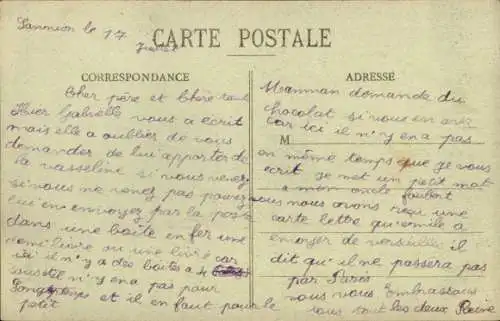 Lanmeon le 17
Juillet
CARTE POSTALE
CORRESPONDANCE
Cher père et Chère tant
Hier Gabrielle vous a ecrit
mais elle a oublier de vous
demander de lui apporter de
la vasseline si vous venez
si vous ne venez pas pouvez
lui en envoyez par la poste
dans une boite en fer une
demi livre ou une livre car
ici il n'y a des boites a 4
sous il n'y ena pas pour
longtemps et il en faut pour le
petit
ADRESSE
Manman demande du
chocolat si vous en avez
car ici il n'y ena pas
M
en même temps que je vous
ecrit je met un petit mot
a mon oncle
nous avons reçu une
carte lettre qu'emile a
envoyer de versailles il
dit qu'il ne passera pas
par Paris
nous vous Embrassons
tous tout les deux Reine